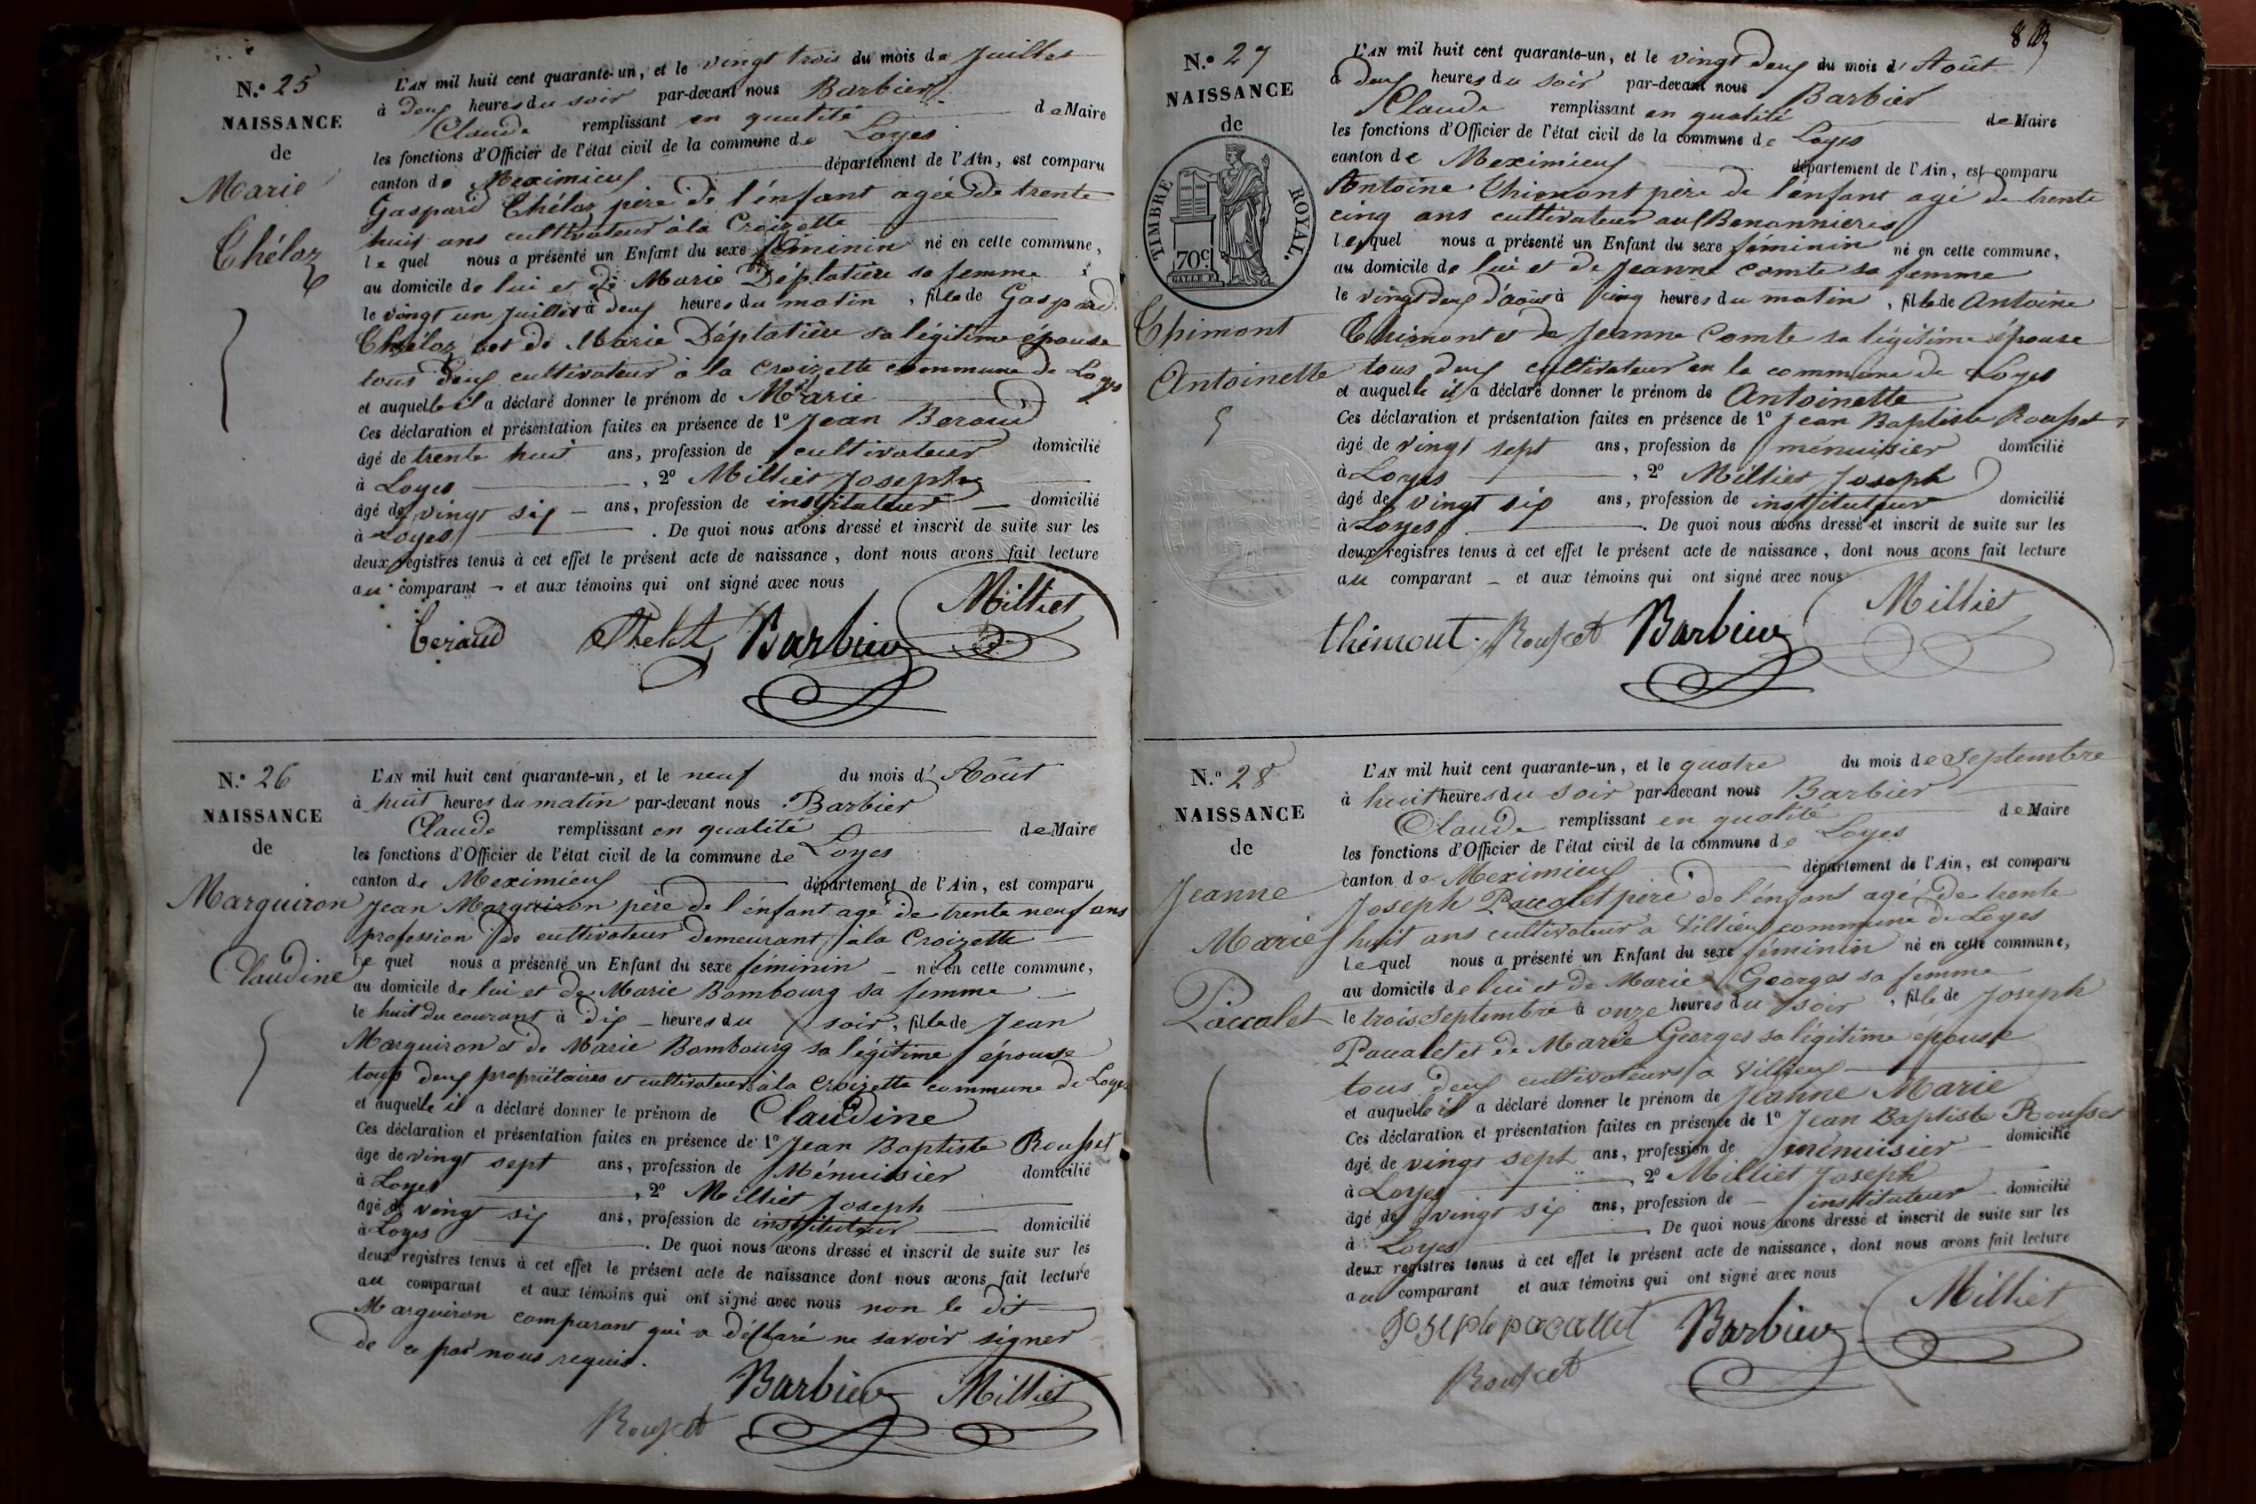 N.° 25
NAISSANCE
de
Marie
Théloz
L'AN mil huit cent quarante-un, et le vingt trois du mois de Juillet
à deux heures du soir par-devant nous Barbier
Claude remplissant en qualité de Maire
les fonctions d'Officier de l'état civil de la commune de Loyes
canton de Meximieux département de l'Ain, est comparu
Gaspard Théloz père de l'énfant agée de trente
huit ans cultivateur à la Croizette
le quel nous a présenté un Enfant du sexe féminin né en cette commune,
au domicile de lui et de Marie Déplatière sa femme
le vingt un Juillet à deux heures du matin, fille de Gaspard
Théloz et de Marie Déplatière sa légitime épouse
tous deux cultivateur à la Croizette commune de Loyes
et auquelle il a déclaré donner le prénom de Marie
Ces déclaration et présentation faites en présence de 1° Jean Beraud
âgé de trente huit ans, profession de cultivateur domicilié
à Loyes, 2° Milliet Joseph
âgé de vingt six ans, profession de instituteur domicilié
à Loyes. De quoi nous avons dressé et inscrit de suite sur les
deux registres tenus à cet effet le présent acte de naissance, dont nous avons fait lecture
au comparant et aux témoins qui ont signé avec nous
beraud Thelot Barbier Milliet
N.° 26
NAISSANCE
de
Marguiron
Claudine
L'AN mil huit cent quarante-un, et le neuf du mois d'Août
à huit heures du matin par-devant nous Barbier
Claude remplissant en qualité de Maire
les fonctions d'Officier de l'état civil de la commune de Loyes
canton de Meximieux département de l'Ain, est comparu
Jean Marguiron père de l'énfant agé de trente neuf ans
profession de cultivateur demeurant à la Croizette
le quel nous a présenté un Enfant du sexe féminin né en cette commune,
au domicile de lui et de Marie Bombourg sa femme
le huit du courant à dix heures du soir, fille de Jean
Marguiron et de Marie Bombourg sa légitime épouse
tous deux propriétaires et cultivateurs à la Croizette commune de Loyes
et auquelle il a déclaré donner le prénom de Claudine
Ces déclaration et présentation faites en présence de 1° Jean Baptiste Rousset
âge de vingt sept ans, profession de Ménuisier domicilié
à Loyes, 2° Milliet Joseph
âgé de vingt six ans, profession de instituteur domicilié
à Loyes. De quoi nous avons dressé et inscrit de suite sur les
deux registres tenus à cet effet le présent acte de naissance dont nous avons fait lecture
au comparant et aux témoins qui ont signé avec nous non le dit
Marguiron comparant qui a déclaré ne savoir signer
de ce par nous requis.
Barbier Milliet
Rousset
83
N.° 27
NAISSANCE
de
TIMBRE ROYAL.
70c
Thimont
Antoinette
L'AN mil huit cent quarante-un, et le vingt deux du mois d'Août
à deux heures du soir par-devant nous Barbier
Claude remplissant en qualité de Maire
les fonctions d'Officier de l'état civil de la commune de Loyes
canton de Meximieux département de l'Ain, est comparu
Antoine Thimont père de l'énfant agé de trente
cinq ans cultivateur aux Bonannieres
lequel nous a présenté un Enfant du sexe féminin né en cette commune,
au domicile de lui et de Jeanne Comte sa femme
le vingt deux d'août à cinq heures du matin, fille de Antoine
Thimont et de Jeanne Comte sa légitime épouse
tous deux cultivateur en la commune de Loyes
et auquelle il a déclaré donner le prénom de Antoinette
Ces déclaration et présentation faites en présence de 1° Jean Baptiste Rousset
âgé de vingt sept ans, profession de ménuisier domicilié
à Loyes, 2° Milliet Joseph
âgé de vingt six ans, profession de instituteur domicilié
à Loyes. De quoi nous avons dressé et inscrit de suite sur les
deux registres tenus à cet effet le présent acte de naissance, dont nous avons fait lecture
au comparant et aux témoins qui ont signé avec nous
thimont Rousset Barbier Milliet
N.° 28
NAISSANCE
de
Jeanne
Marie
Paccalet
L'AN mil huit cent quarante-un, et le quatre du mois de Septembre
à huit heures du soir par-devant nous Barbier
Claude remplissant en qualité de Maire
les fonctions d'Officier de l'état civil de la commune de Loyes
canton de Meximieux département de l'Ain, est comparu
Joseph Paccalet père de l'énfant agé de trente
huit ans cultivateur à Villieux commune de Loyes
lequel nous a présenté un Enfant du sexe féminin né en cette commune,
au domicile de lui et de Marie Georges sa femme
le trois Septembre à onze heures du soir, fille de Joseph
Paccalet et de Marie Georges sa légitime épouse
tous deux cultivateurs à Villieux
et auquelle il a déclaré donner le prénom de Jeanne Marie
Ces déclaration et présentation faites en présence de 1° Jean Baptiste Rousset
âgé de vingt sept ans, profession de menuisier domicilié
à Loyes, 2° Milliet Joseph
âgé de vingt six ans, profession de instituteur domicilié
à Loyes. De quoi nous avons dressé et inscrit de suite sur les
deux registres tenus à cet effet le présent acte de naissance, dont nous avons fait lecture
au comparant et aux témoins qui ont signé avec nous
Joseph pacallet Barbier Milliet
Rousset